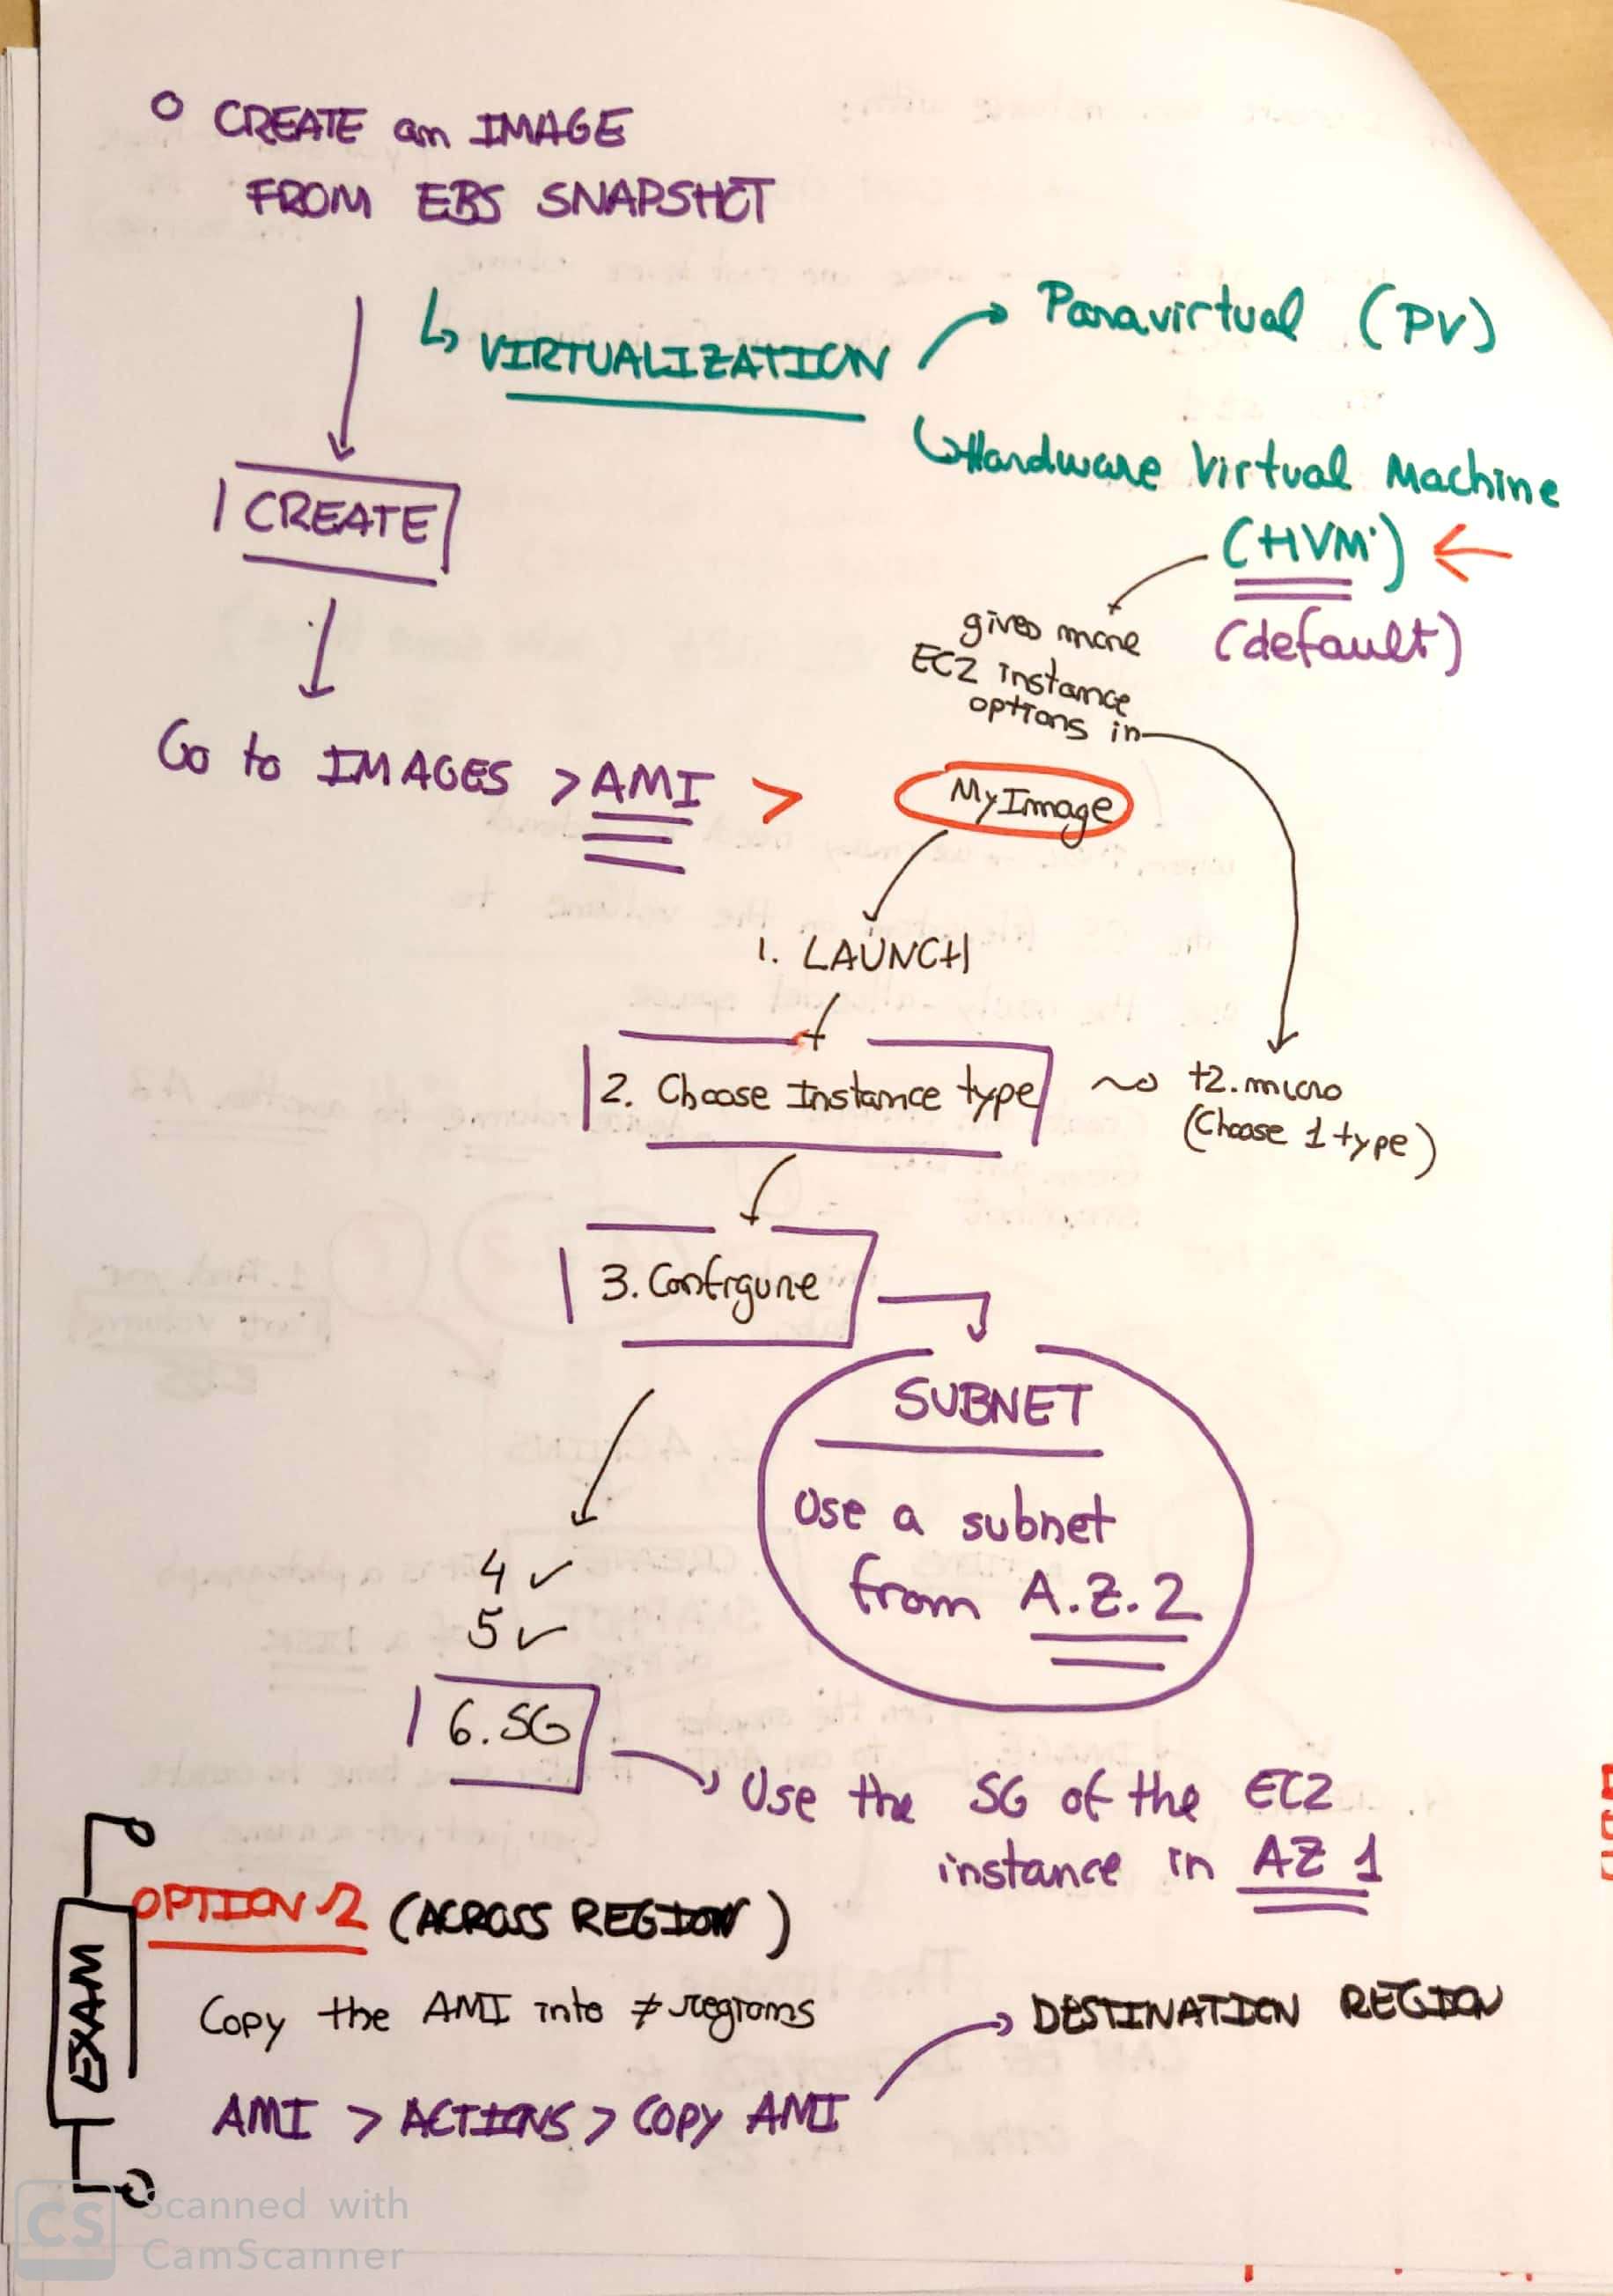 CREATE an IMAGE
FROM EBS SNAPSHOT
↳ VIRTUALIZATION
Paravirtual (PV)
Hardware Virtual Machine
(HVM) ←
(default)
CREATE
gives more
EC2 instance
options in
Go to IMAGES > AMI > MyImage
1. LAUNCH
2. Choose Instance type
t2.micro
(Choose 1 type)
3. Configure
SUBNET
Use a subnet
from A.Z.2
4 ✓
5 ✓
6. SG
Use the SG of the EC2
instance in AZ 1
EXAM
OPTION 2 (ACROSS REGION)
Copy the AMI into ≠ regions
DESTINATION REGION
AMI > ACTIONS > COPY AMI
CS Scanned with
CamScanner